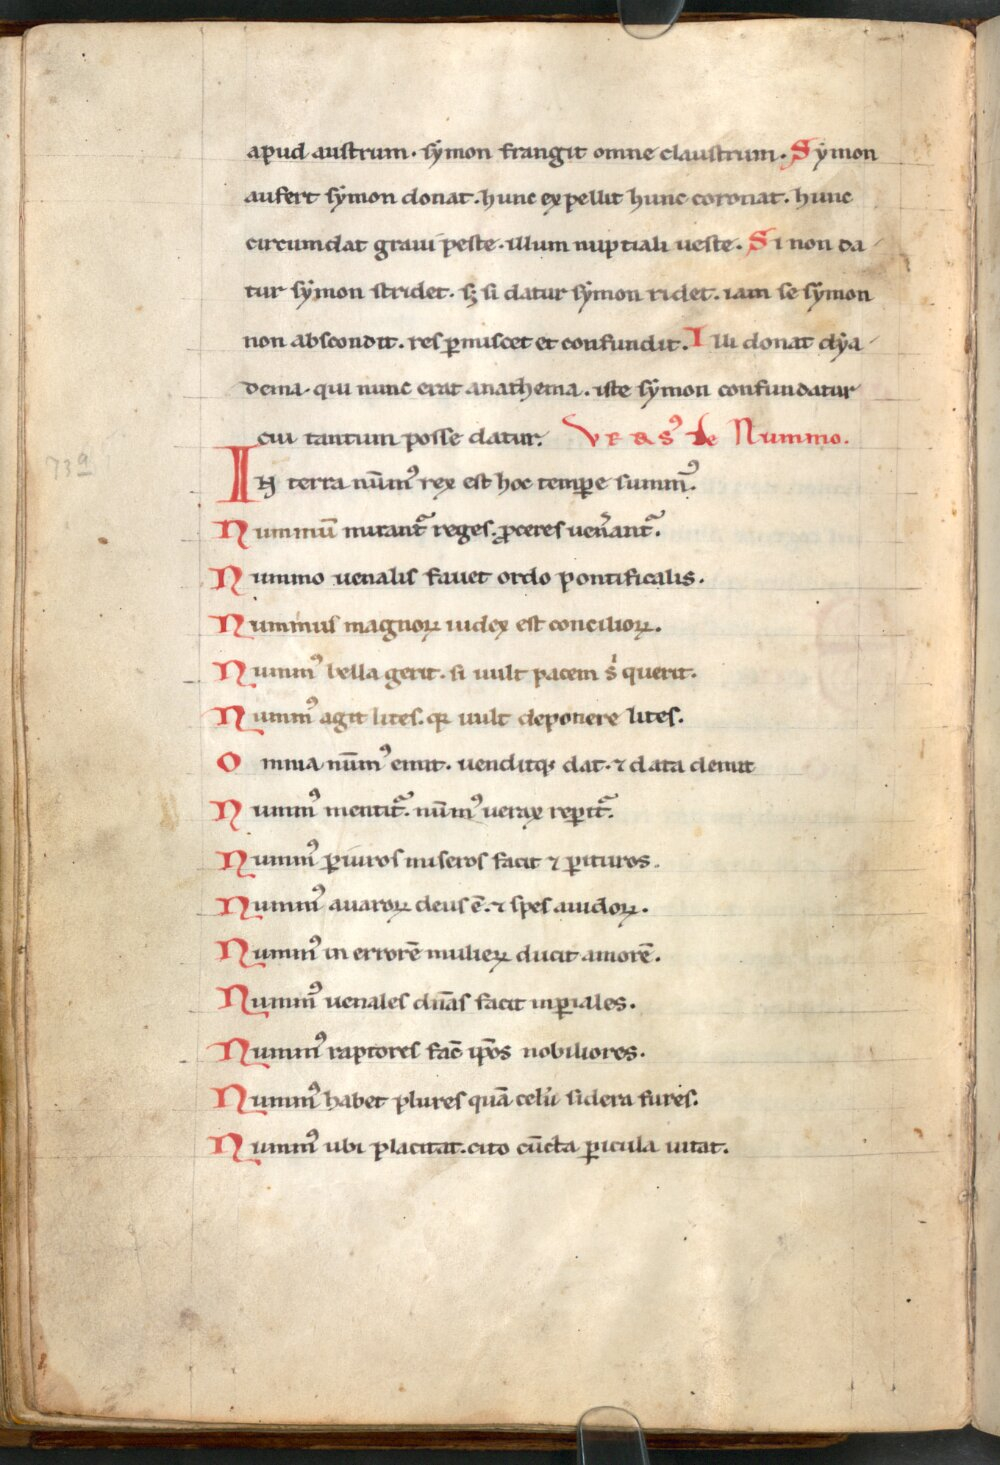 apud austrum. sẏmon frangit omne claustrum. Sẏmon
aufert sẏmon donat. hunc expellit hunc coronat. hunc
circumdat graui peste. illum nuptiali ueste. Si non da
tur sẏmon stridet. sꝫ si datur sẏmon ridet. iam se sẏmon
non abscondit. res ꝑmiscet et confundit. Illi donat dẏa
dema. qui nunc erat anathema. iste sẏmon confundatur
cui tantum posse datur. VERSꝰ de Nummo.
73a
IN terra nūmꝰ rex est hoc tempore summꝰ.
Nummū mirantᷣ reges. ꝓceres uen̄antᷣ.
Nummo uenalis fauet ordo pontificalis.
Nummus magnoꝝ iudex est concilioꝝ.
Nummꝰ bella gerit. si uult pacem s̄ querit.
Nummꝰ agit lites. qꝛ uult deponere lites.
Omnia nūmꝰ emit. uenditqꝫ dat. ⁊ data demit
Nummꝰ mentitᷣ. nūmꝰ uerax reꝑitᷣ.
Nummꝰ ꝑiuros miseros facit ⁊ ꝑituros.
Nummꝰ auaroꝝ deus ē. ⁊ spes auidoꝝ.
Nummꝰ in errorē mulieꝝ ducit amorē.
Nummꝰ uenales dn̄as facit inꝑiales.
Nummꝰ raptores fac̄ ip̄os nobiliores.
Nummꝰ habet plures quā celū sidera fures.
Nummꝰ ubi placitat. cito cūcta ꝑicula uitat.